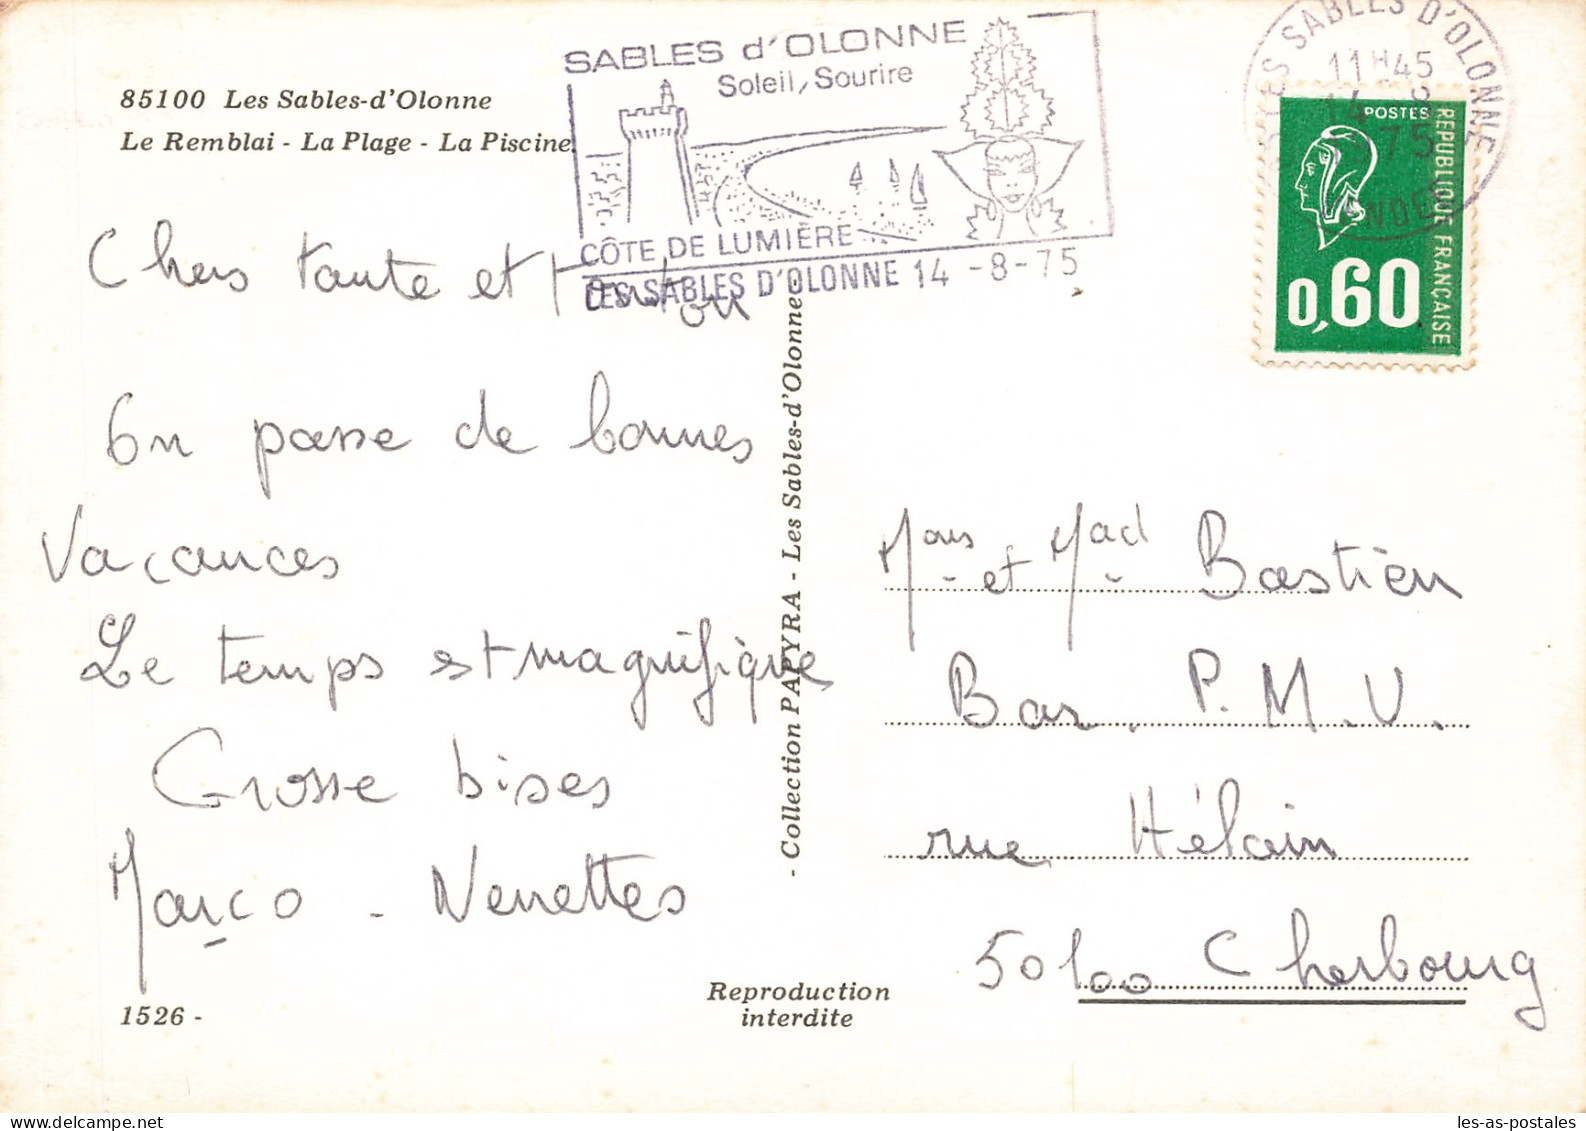 85100 Les Sables-d'Olonne
Le Remblai - La Plage - La Piscine
SABLES d'OLONNE
Soleil, Sourire
CÔTE DE LUMIÈRE
LES SABLES D'OLONNE 14 -8-75
LES SABLES D'OLONNE
11H45
14-8
75
POSTES
REPUBLIQUE FRANÇAISE
0,60
Chers tante et tonton
On passe de bonnes
Vacances
Le temps est magnifique
Grosse bises
Marco - Nenettes
- Collection PAPYRA - Les Sables-d'Olonne -
Mons et Mad Bastien
Bar. P.M.U.
rue Hélain
50100 Cherbourg
Reproduction
interdite
1526 -
les-as-postales